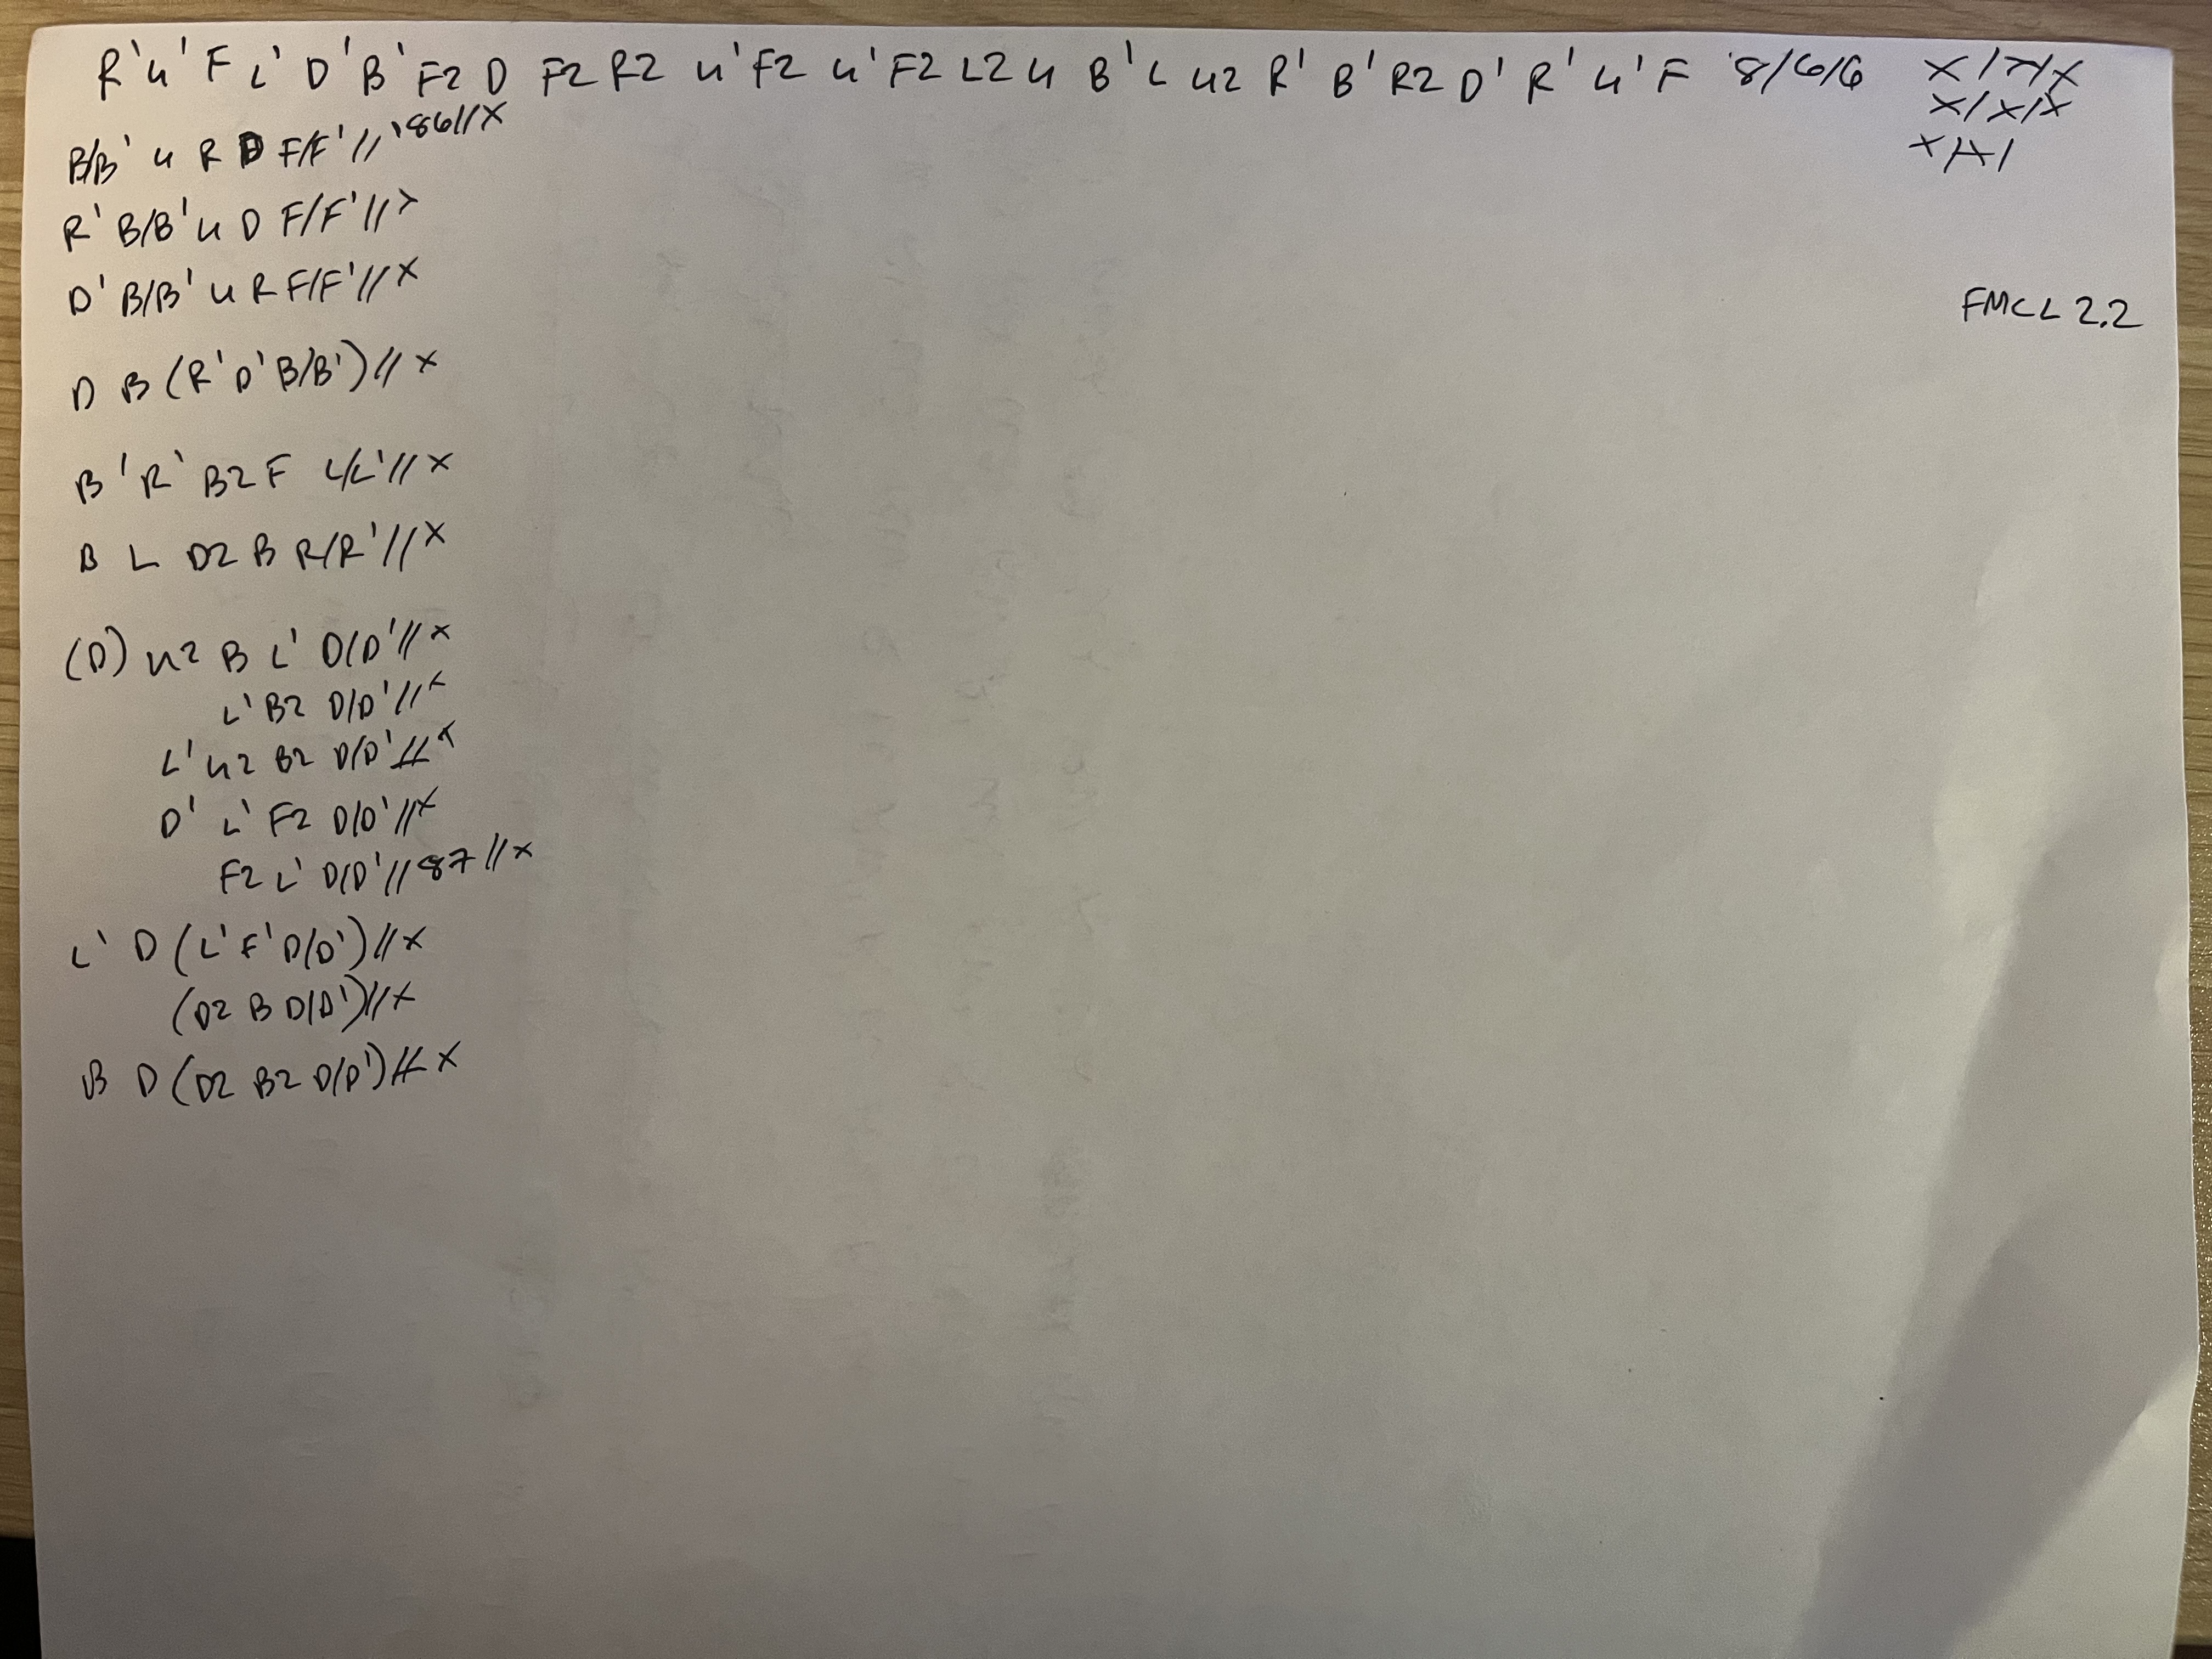 R' U' F L' D' B' F2 D F2 R2 U' F2 U' F2 L2 U B' L U2 R' B' R2 D' R' U' F 8/6/6 X/X/X
X/X/X
X/X/
B/B' U R D F/F' // 86 // X
R' B/B' U D F/F' // X
D' B/B' U R F/F' // X
FMCL 2.2
D B (R' D' B/B') // X
B' R' B2 F L/L' // X
B L D2 B R/R' // X
(D) U2 B L' D/D' // X
L' B2 D/D' // X
L' U2 B2 D/D' // X
D' L' F2 D/D' // X
F2 L' D/D' // 87 // X
L' D (L' F' D/D') // X
(D2 B D/D') // X
B D (D2 B2 D/D') // X